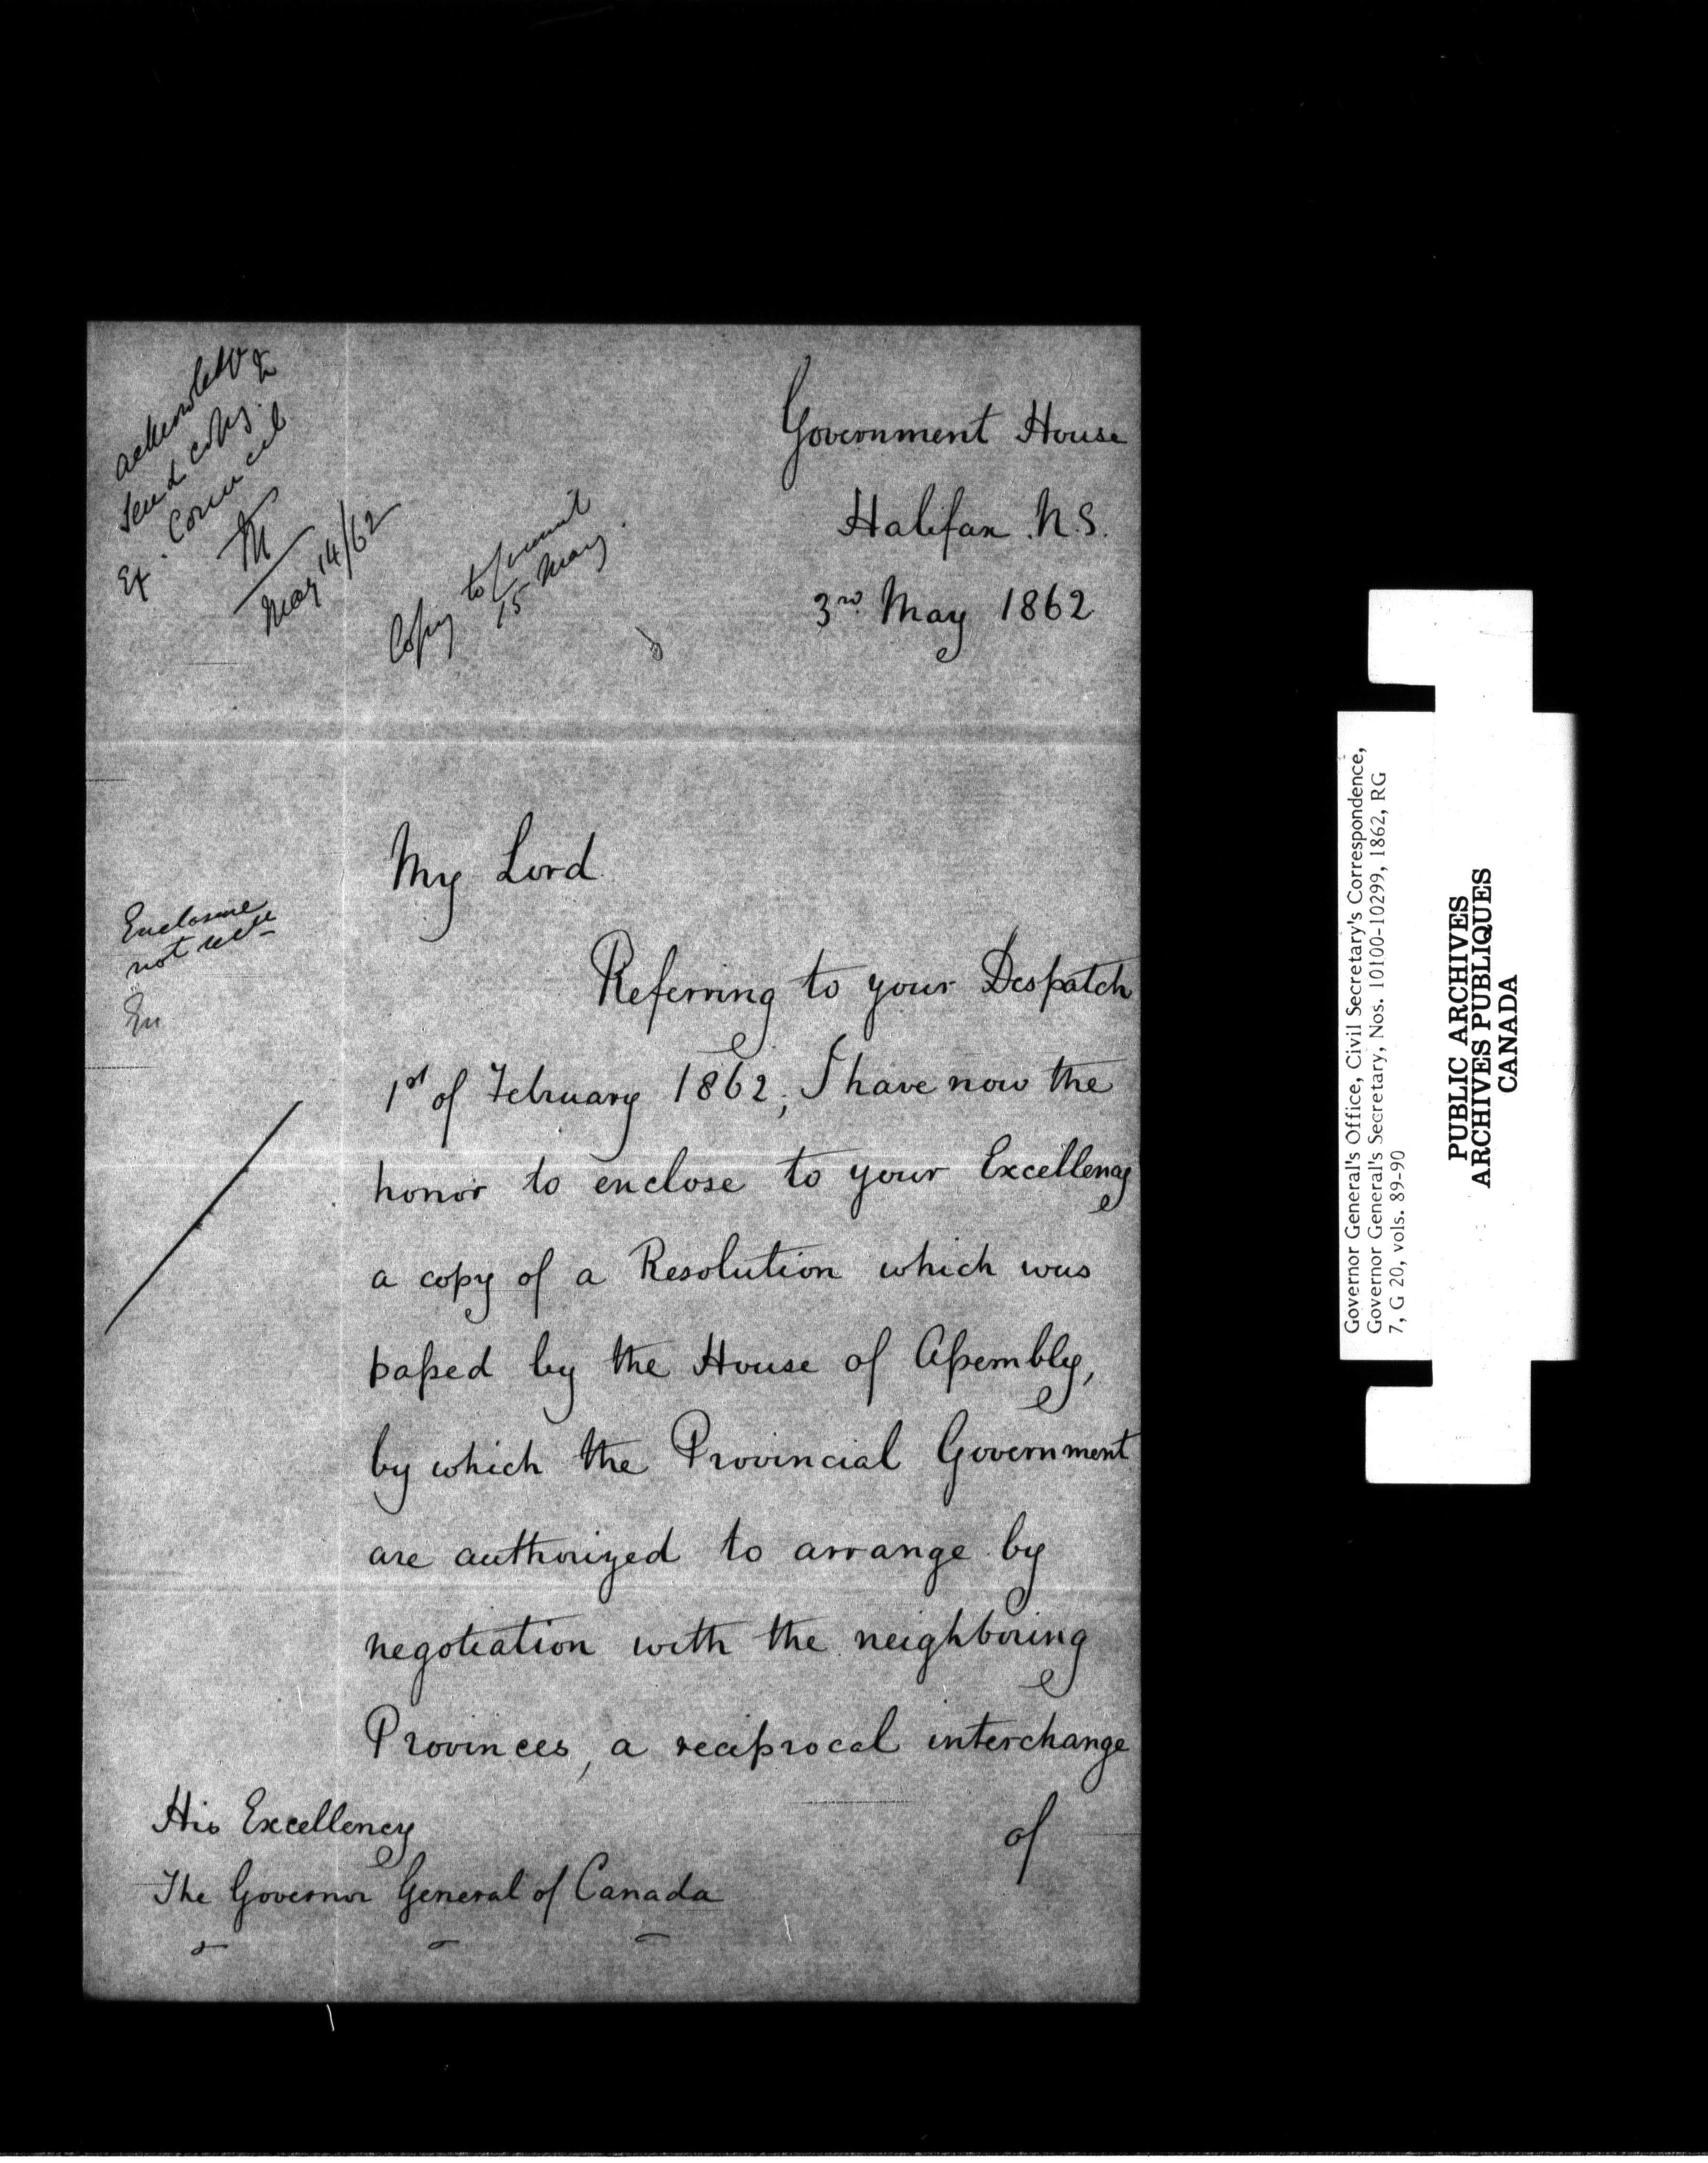 acknowledge &
send copy
Ex. Council
M
May 14/62
Copy to Council
15 May.
Government House
Halifax. N.S.
3rd May 1862
My Lord
Enclosure
not recd
En
Referring to your Despatch
1st of February 1862, I have now the
honor to enclose to your Excellency
a copy of a Resolution which was
paſsed by the House of Aſsembly,
by which the Provincial Government
are authorized to arrange by
negotiation with the neighboring
Provinces, a reciprocal interchange
of
His Excellency
The Governor General of Canada
Governor General's Office, Civil Secretary's Correspondence,
Governor General's Secretary, Nos. 10100-10299, 1862, RG
7, G 20, vols. 89-90
PUBLIC ARCHIVES
ARCHIVES PUBLIQUES
CANADA